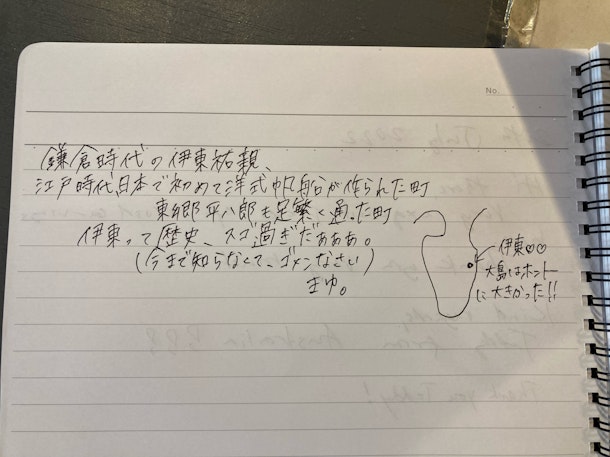 No.
鎌倉時代の伊東祐親、
江戸時代日本で初めて洋式帆船が作られた町
東郷平八郎も足繁く通った町
伊東って歴史、スゴ過ぎだぁぁぁ。
(今まで知らなくて、ゴメンなさい)
まゆ。
伊東♡♡
大島はホントー
に大きかった!!